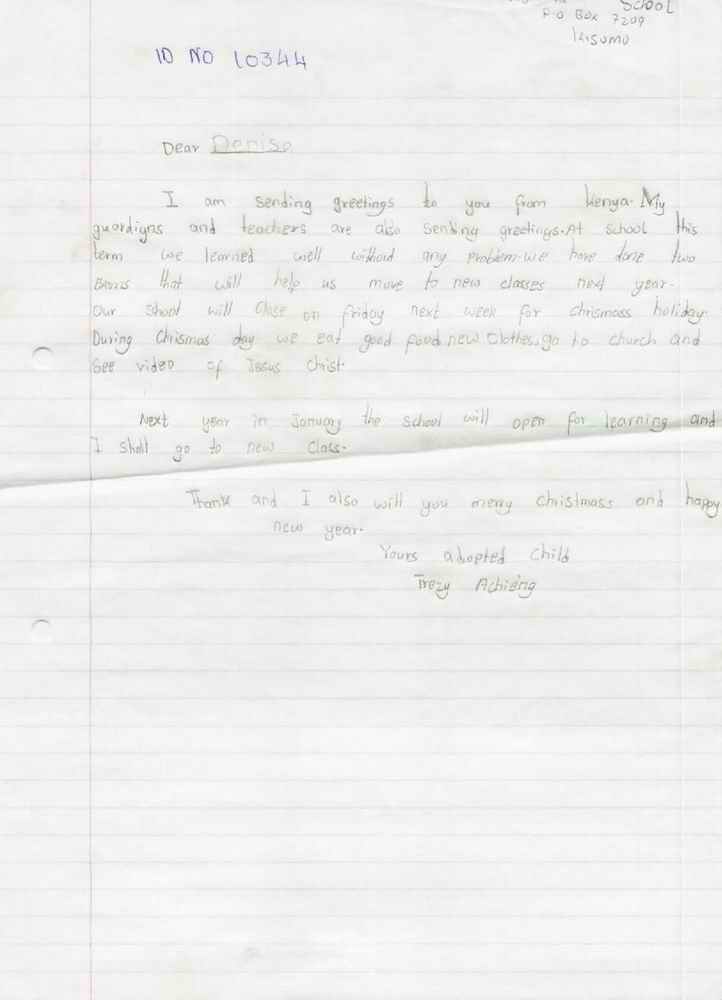 School
P.O Box 7209
Kisumu
ID NO 10344
Dear Denise
I am sending greetings to you from kenya. My
guardigns and teachers are also sending greetings.At school this
term we learned well without any problem.we have done two
Exams that will help us move to new classes next year.
Our shool will close on friday next week for chrismass holiday.
During Chrismas day we eat good food,new clothes,go to church and
See video of Jesus Christ.
Next year in January the school will open for learning and
I shall go to new class.
Thank and I also will you merry christmass and happy
new year.
Yours adopted child
Trezy Achieng